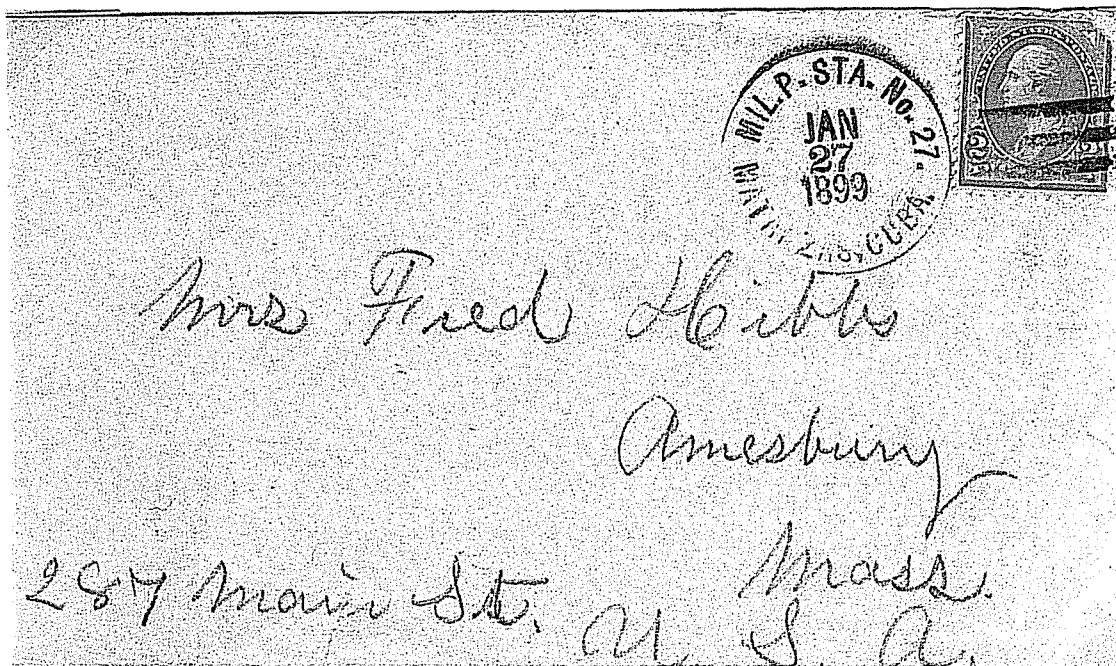 MIL. P. STA. No. 27.
JAN
27
1899
CUBA.
2
Mrs Fred Hibbs
Amesbury
Mass.
287 Main St.
U. S. A.